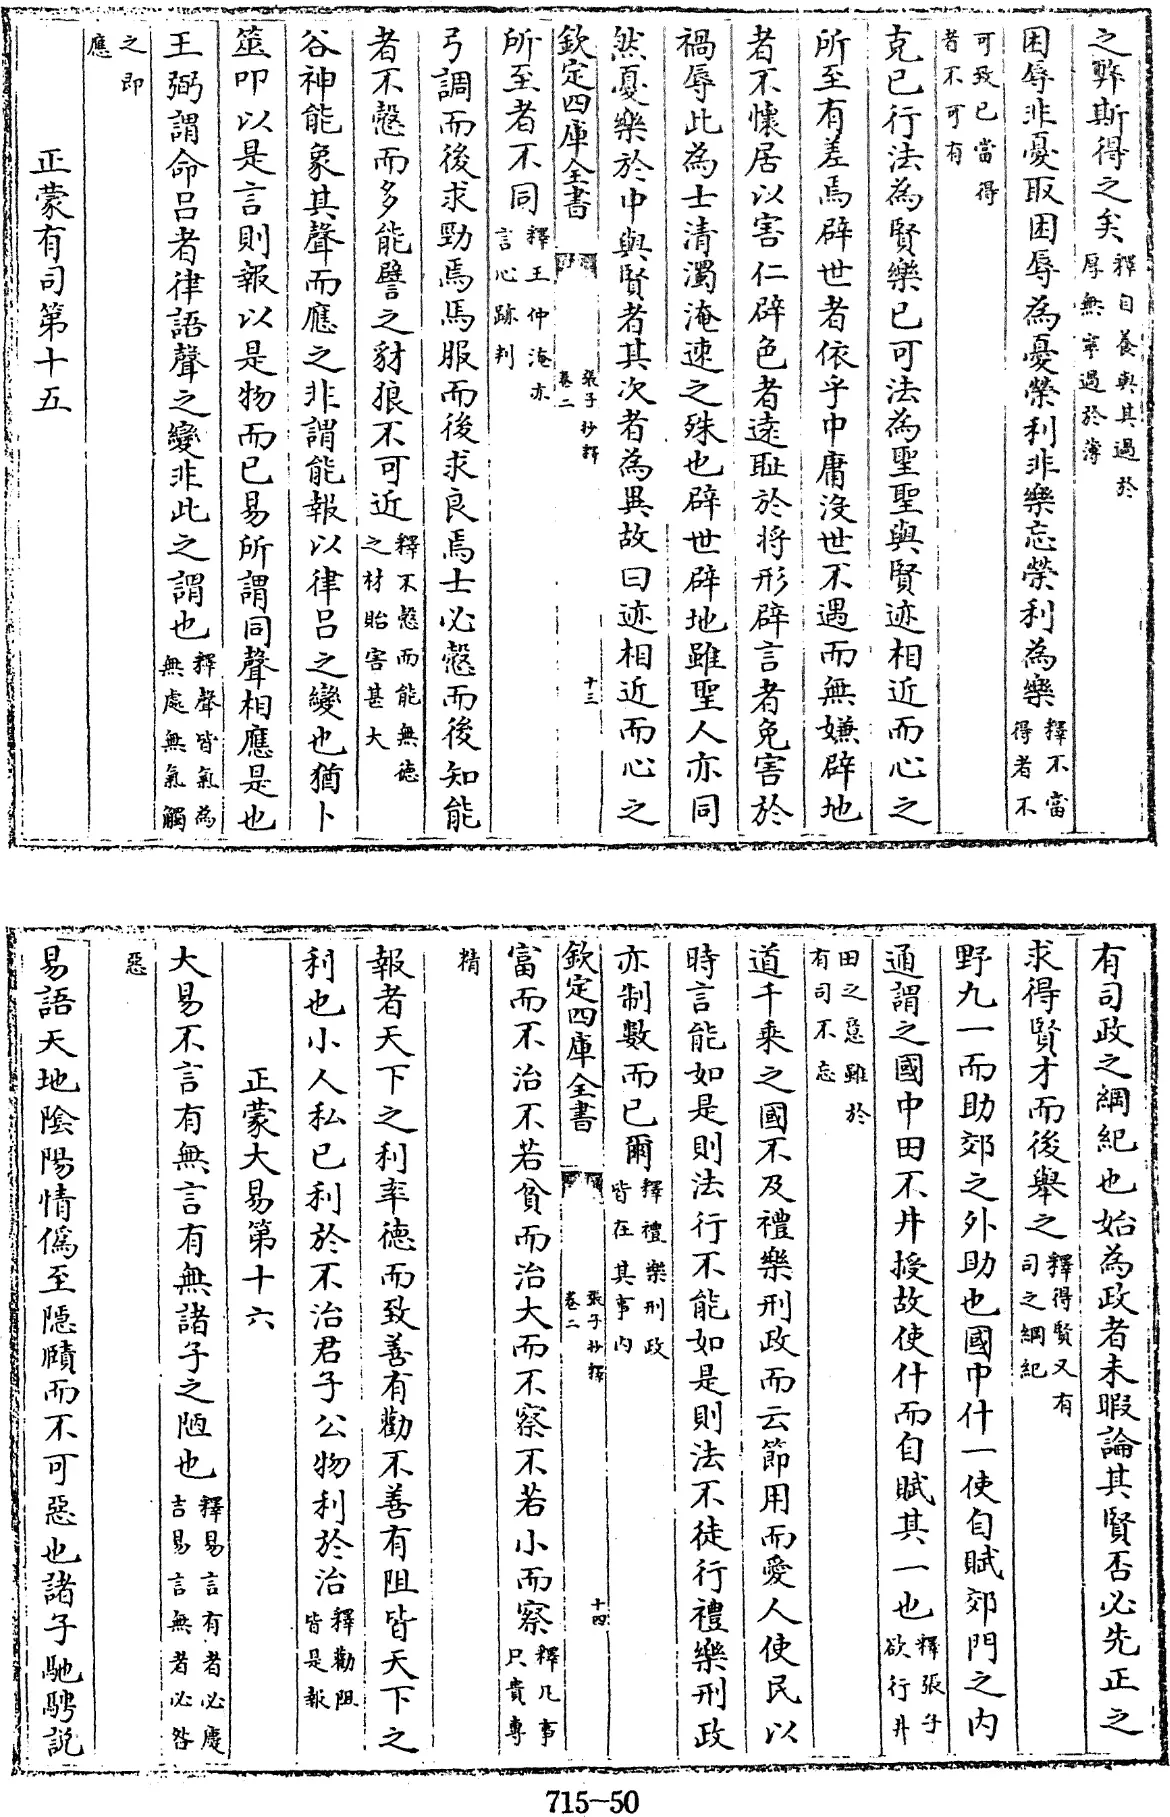 之弊斯得之矣釋自養與其過於
厚無寧過於薄
困辱非憂取困辱為憂榮利非樂忘榮利為樂釋不當
得者不
可致已當得
者不可有
克己行法為賢樂己可法為聖聖與賢迹相近而心之
所至有差焉辟世者依乎中庸沒世不遇而無嫌辟地
者不懷居以害仁辟色者遠恥於將形辟言者免害於
禍辱此為士清濁淹速之殊也辟世辟地雖聖人亦同
然憂樂於中與賢者其次者為異故曰迹相近而心之
欽定四庫全書
張子抄釋
卷二
十三
所至者不同釋王仲淹亦
言心跡判
弓調而後求勁焉馬服而後求良焉士必慤而後知能
者不慤而多能譬之豺狼不可近釋不慤而能無德
之材貽害甚大
谷神能象其聲而應之非謂能報以律呂之變也猶卜
筮叩以是言則報以是物而已易所謂同聲相應是也
王弼謂命呂者律語聲之變非此之謂也釋聲皆氣為
無處無氣觸
之即
應
正蒙有司第十五
有司政之綱紀也始為政者未暇論其賢否必先正之
求得賢才而後舉之釋得賢又有
司之綱紀
野九一而助郊之外助也國中什一使自賦郊門之內
通謂之國中田不井授故使什而自賦其一也釋張子
欲行井
田之意雖於
有司不忘
道千乘之國不及禮樂刑政而云節用而愛人使民以
時言能如是則法行不能如是則法不徒行禮樂刑政
亦制數而已爾釋禮樂刑政
皆在其事內
欽定四庫全書
張子抄釋
卷二
十四
富而不治不若貧而治大而不察不若小而察釋凡事
只貴專
精
報者天下之利率德而致善有勸不善有阻皆天下之
利也小人私己利於不治君子公物利於治釋勸阻
皆是報
正蒙大易第十六
大易不言有無言有無諸子之陋也釋易言有者必慶
吉易言無者必咎
惡
易語天地陰陽情偽至隱賾而不可惡也諸子馳騁說
715-50